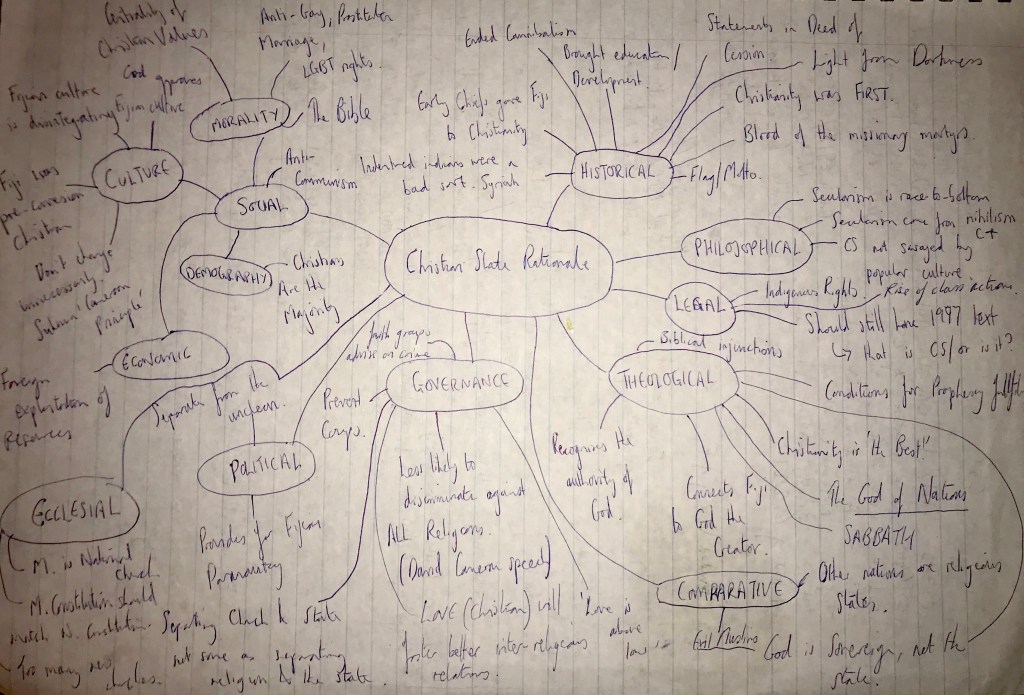 Centrality of
Christian Values
God approves
Fijian culture
Fijian culture
is disintegrating
CULTURE
Fiji was
pre-conversion
Christian
Don't change
unnecessarily.
'Cameron
Principle'
Anti-Gay, Prostitution
Marriage,
LGBT rights.
MORALITY
The Bible
Anti-
Communism
SOCIAL
DEMOGRAPHY
Christians
Are the
Majority
ECONOMIC
Foreign
exploitation of
Resources
Christian State Rationale
Ended Cannibalism
Brought education/
Development.
Early Chiefs gave Fiji
to Christianity
Indentured indians were a
bad sort.
HISTORICAL
Statements in Deed of
Cession
Light from Darkness
Christianity was FIRST.
Blood of the missionary martyrs.
Flag/Motto.
PHILOSOPHICAL
Secularism is race-to-bottom
Secularism came from nihilism
CS not swayed by
popular culture
LEGAL
Indigenous Rights
Rise of class actions.
Should still have 1997 text
↳ that is CS/or is it?
THEOLOGICAL
Biblical injunctions
Conditions for Prophecy
Christianity is 'the Best!'
The God of Nations
SABBATH
Recognises the
authority of
God.
Connects Fiji
to God the
Creator.
God is Sovereign, not the
state.
COMPARATIVE
Other nations are religious
states.
Evil Muslims
GOVERNANCE
Youth groups
advise on crime
Prevent
Coups.
Less likely to
discriminate against
ALL Religions.
(David Cameron speech)
LOVE (Christian) will
foster better inter-religious
relations.
'Love is
above
law'
Separating Church & State
not same as separating
religion & the state.
POLITICAL
Separate from the
unclean.
Provides for Fijian
Paramountcy
ECCLESIAL
M. is National
church
M. Constitution should
match N. Constitution.
Too many new
churches.